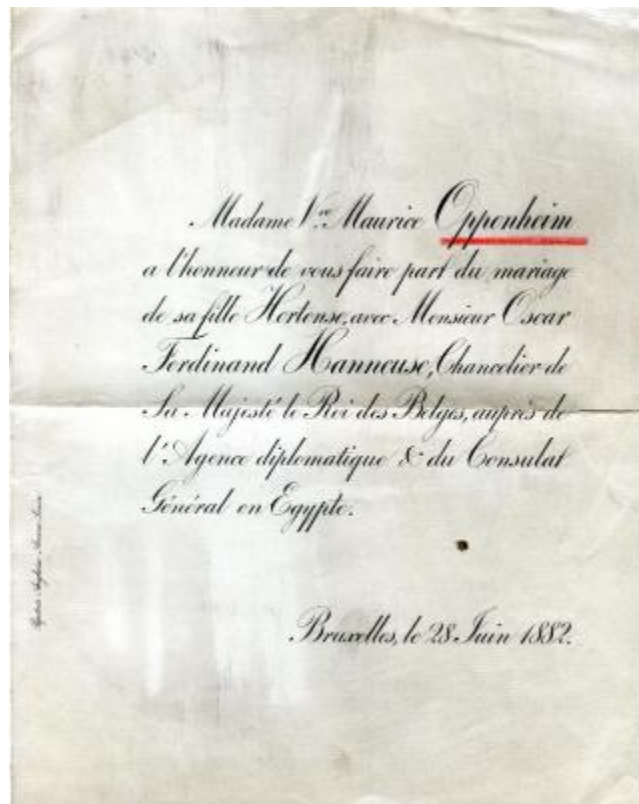 Madame Vve Maurice Oppenheim
a l'honneur de vous faire part du mariage
de sa fille Hortense, avec Monsieur Oscar
Ferdinand Hanneuse, Chancelier de
Sa Majesté le Roi des Belges, auprès de
l'Agence diplomatique & du Consulat
Général en Egypte.
Bruxelles, le 28 Juin 1882.